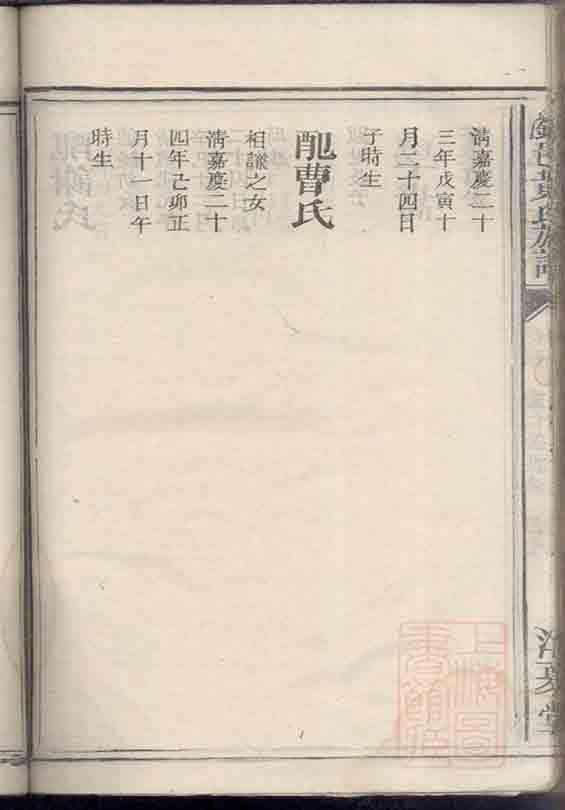 邑黃氏族譜
江夏堂
清嘉慶二十
三年戊寅十
月二十四日
子時生
配曹氏
相讓之女
清嘉慶二十
四年己卯正
月十一日午
時生
上海圖
書館藏